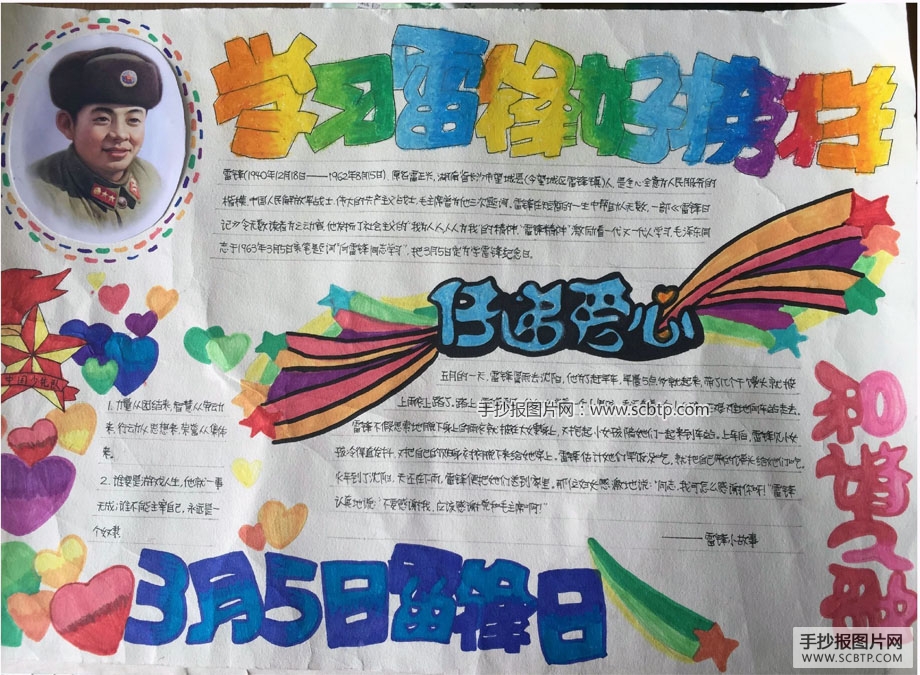 学习雷锋好榜样
雷锋(1940年12月18日——1962年8月15日),原名雷正兴,湖南省长沙市望城县(今望城区雷锋镇)人,是全心全意为人民服务的
楷模,中国人民解放军战士,伟大的共产主义战士,毛主席曾为他三次题词。雷锋在短暂的一生中帮助人无数,一部《雷锋日
记》令无数读者为之动容,他发扬了社会主义的"我为人人人人为我"的精神,"雷锋精神",激励着一代又一代人学习,毛泽东同
志于1963年3月5日亲笔题词"向雷锋同志学习",把3月5日定为学雷锋纪念日。
传递爱心
五月的一天,雷锋冒雨去沈阳,他为了赶早车,早晨5点多就起来,带了几个干馒头就披
上雨衣上路了,路上
手抄报图片网:www.scbtp.com
雷锋不假思索地脱下身上的雨衣就披在大嫂身上,又抱起小女孩陪她们一起来到车站。上车后,雷锋见小女
孩冷得直发抖,又把自己的贴身衣裤脱下来给她穿上,雷锋估计她们早饭没吃,就把自己带的馒头给她们吃。
火车到了沈阳,天还在下雨,雷锋便把她们送到家里,那位妇女感激地说:"同志,我可怎么感谢你呀!"雷锋
认真地说:"不要感谢我,应该感谢党和毛主席啊!"
——雷锋小故事
中国少先队
1. 力量从团结来,智慧从劳动
来,行动从思想来,荣誉从集体
来。
2. 谁要是游戏人生,他就一事
无成;谁不能主宰自己,永远是一
个奴隶
3月5日雷锋日
手抄报图片网
WWW.SCBTP.COM